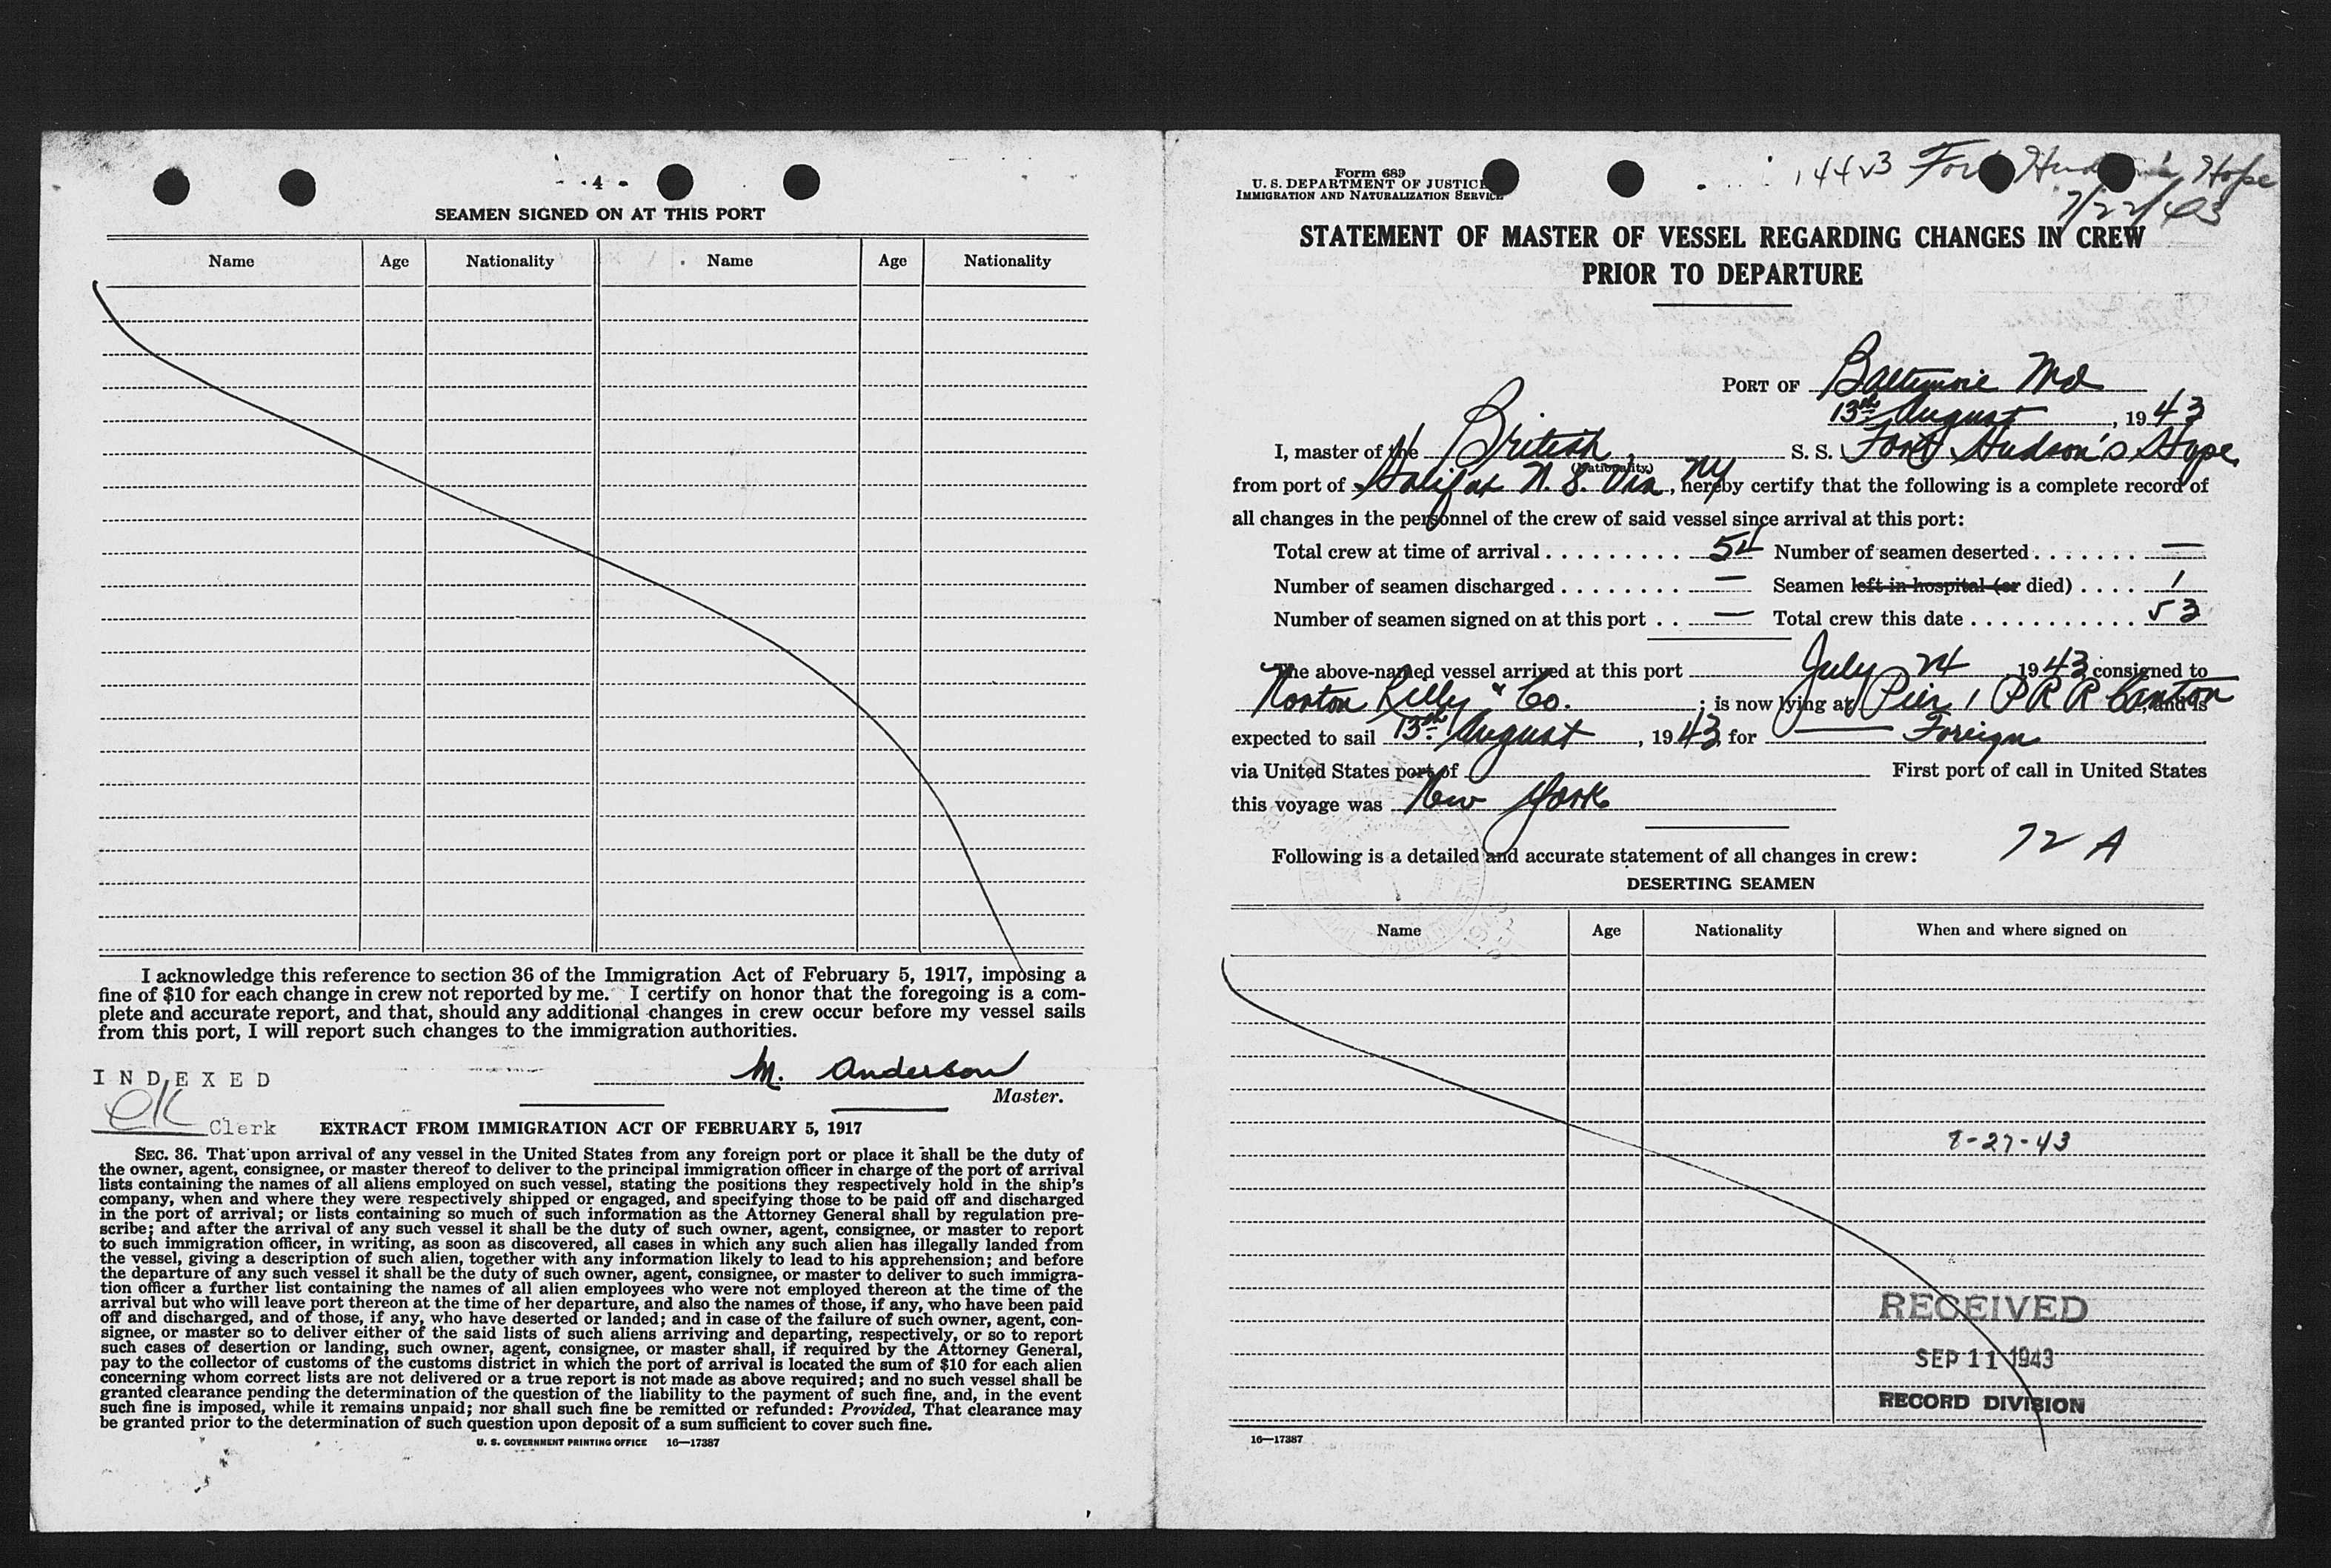 - 4 -
SEAMEN SIGNED ON AT THIS PORT
Name Age Nationality Name Age Nationality
I acknowledge this reference to section 36 of the Immigration Act of February 5, 1917, imposing a
fine of $10 for each change in crew not reported by me. I certify on honor that the foregoing is a com-
plete and accurate report, and that, should any additional changes in crew occur before my vessel sails
from this port, I will report such changes to the immigration authorities.
M. Anderson
Master.
INDEXED
Clerk
EXTRACT FROM IMMIGRATION ACT OF FEBRUARY 5, 1917
SEC. 36. That upon arrival of any vessel in the United States from any foreign port or place it shall be the duty of
the owner, agent, consignee, or master thereof to deliver to the principal immigration officer in charge of the port of arrival
lists containing the names of all aliens employed on such vessel, stating the positions they respectively hold in the ship's
company, when and where they were respectively shipped or engaged, and specifying those to be paid off and discharged
in the port of arrival; or lists containing so much of such information as the Attorney General shall by regulation pre-
scribe; and after the arrival of any such vessel it shall be the duty of such owner, agent, consignee, or master to report
to such immigration officer, in writing, as soon as discovered, all cases in which any such alien has illegally landed from
the vessel, giving a description of such alien, together with any information likely to lead to his apprehension; and before
the departure of any such vessel it shall be the duty of such owner, agent, consignee, or master to deliver to such immigra-
tion officer a further list containing the names of all alien employees who were not employed thereon at the time of the
arrival but who will leave port thereon at the time of her departure, and also the names of those, if any, who have been paid
off and discharged, and of those, if any, who have deserted or landed; and in case of the failure of such owner, agent, con-
signee, or master so to deliver either of the said lists of such aliens arriving and departing, respectively, or so to report
such cases of desertion or landing, such owner, agent, consignee, or master shall, if required by the Attorney General,
pay to the collector of customs of the customs district in which the port of arrival is located the sum of $10 for each alien
concerning whom correct lists are not delivered or a true report is not made as above required; and no such vessel shall be
granted clearance pending the determination of the question of the liability to the payment of such fine, and, in the event
such fine is imposed, while it remains unpaid; nor shall such fine be remitted or refunded: Provided, That clearance may
be granted prior to the determination of such question upon deposit of a sum sufficient to cover such fine.
U. S. GOVERNMENT PRINTING OFFICE 16—17387
Form 689
U. S. DEPARTMENT OF JUSTICE
IMMIGRATION AND NATURALIZATION SERVICE
Hope
7/22/43
STATEMENT OF MASTER OF VESSEL REGARDING CHANGES IN CREW
PRIOR TO DEPARTURE
PORT OF Baltimore Md
13th August, 1943
I, master of the British S. S. Fort Hudson's Hope,
(Nationality)
from port of Halifax N. S. Via NY, hereby certify that the following is a complete record of
all changes in the personnel of the crew of said vessel since arrival at this port:
Total crew at time of arrival . . . . . . . . . . 54 Number of seamen deserted . . . . . . . —
Number of seamen discharged . . . . . . . . — Seamen left in hospital (or died) . . . . 1
Number of seamen signed on at this port . . — Total crew this date . . . . . . . . . . . . 53
The above-named vessel arrived at this port July 24 1943 consigned to
Norton Lilly & Co. ; is now lying at Pier 1 PRR Canton, and is
expected to sail 13th August, 1943 for — Foreign
via United States port of First port of call in United States
this voyage was New York
72 A
Following is a detailed and accurate statement of all changes in crew:
DESERTING SEAMEN
Name Age Nationality When and where signed on
8-27-43
RECEIVED
SEP 11 1943
RECORD DIVISION
16—17387